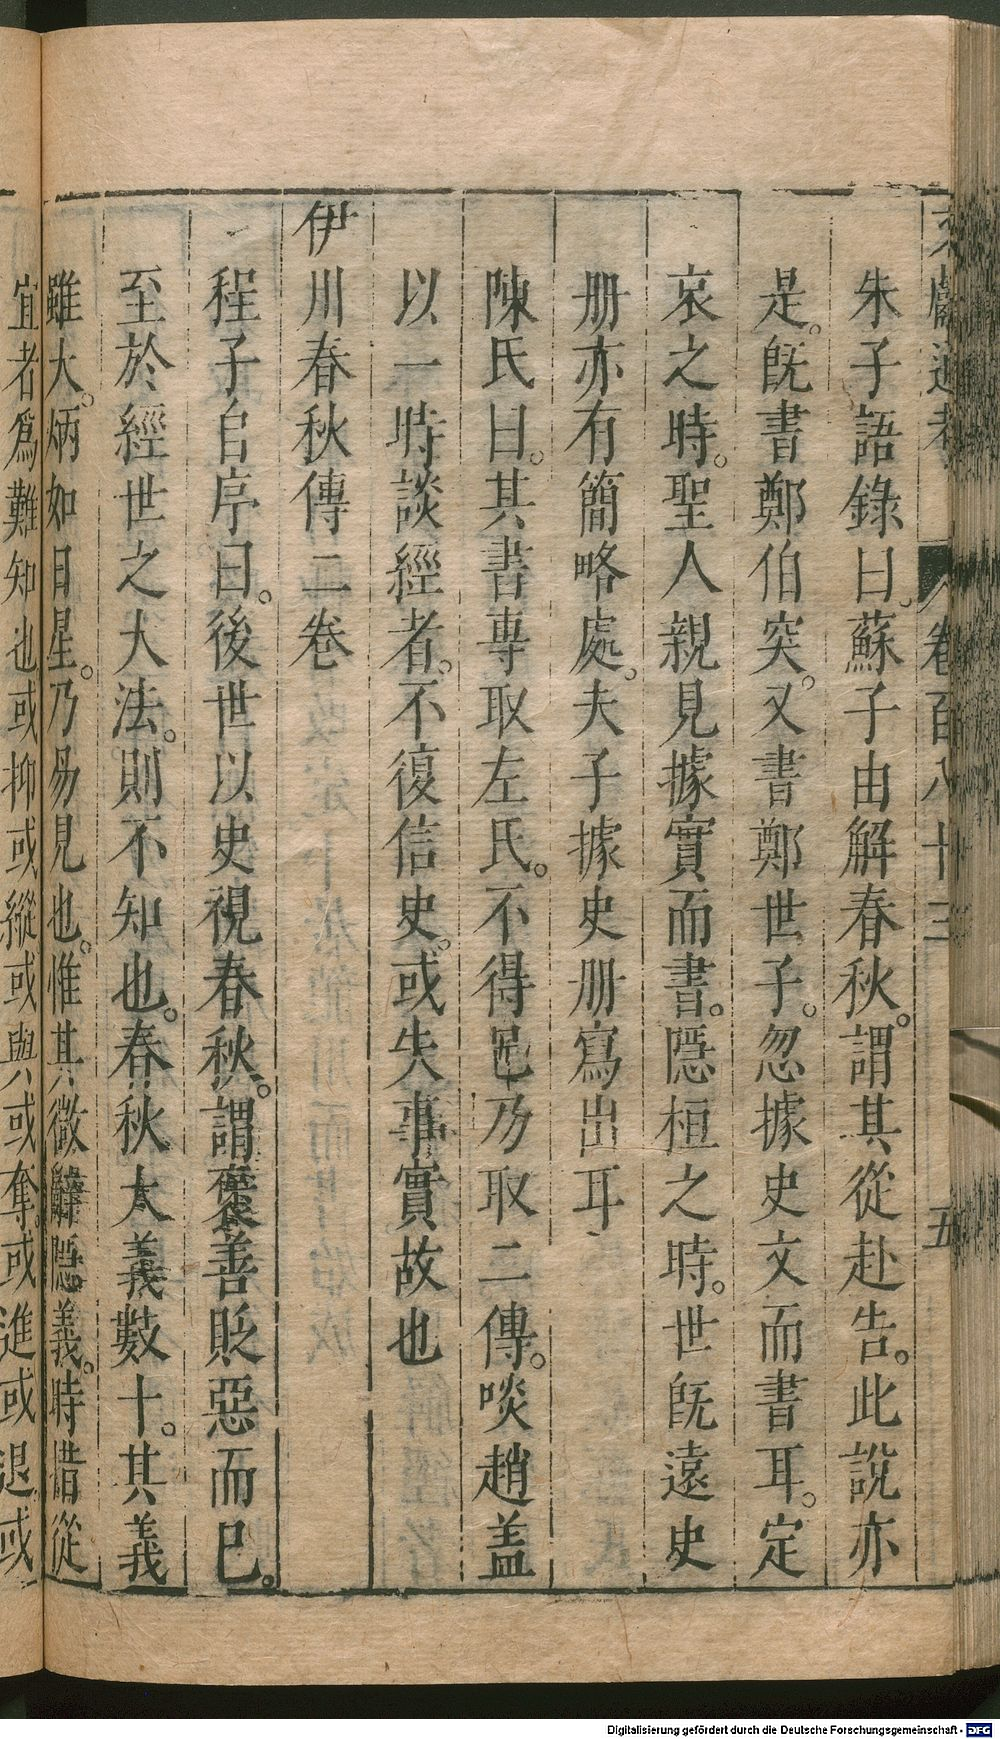 文獻通考 卷百八十三 五
朱子語錄曰蘇子由解春秋謂其從赴告此說亦
是既書鄭伯突又書鄭世子忽據史文而書耳定
哀之時聖人親見據實而書隱桓之時世既遠史
册亦有簡略處夫子據史册寫出耳
陳氏曰其書專取左氏不得已乃取二傳啖趙盖
以一時談經者不復信史或失事實故也
伊川春秋傳二卷
程子自序曰後世以史視春秋謂褒善貶惡而已
至於經世之大法則不知也春秋大義數十其義
雖大炳如日星乃易見也惟其微辭隱義時措從
宜者爲難知也或抑或縱或與或奪或進或退或
Digitalisierung gefördert durch die Deutsche Forschungsgemeinschaft - DFG